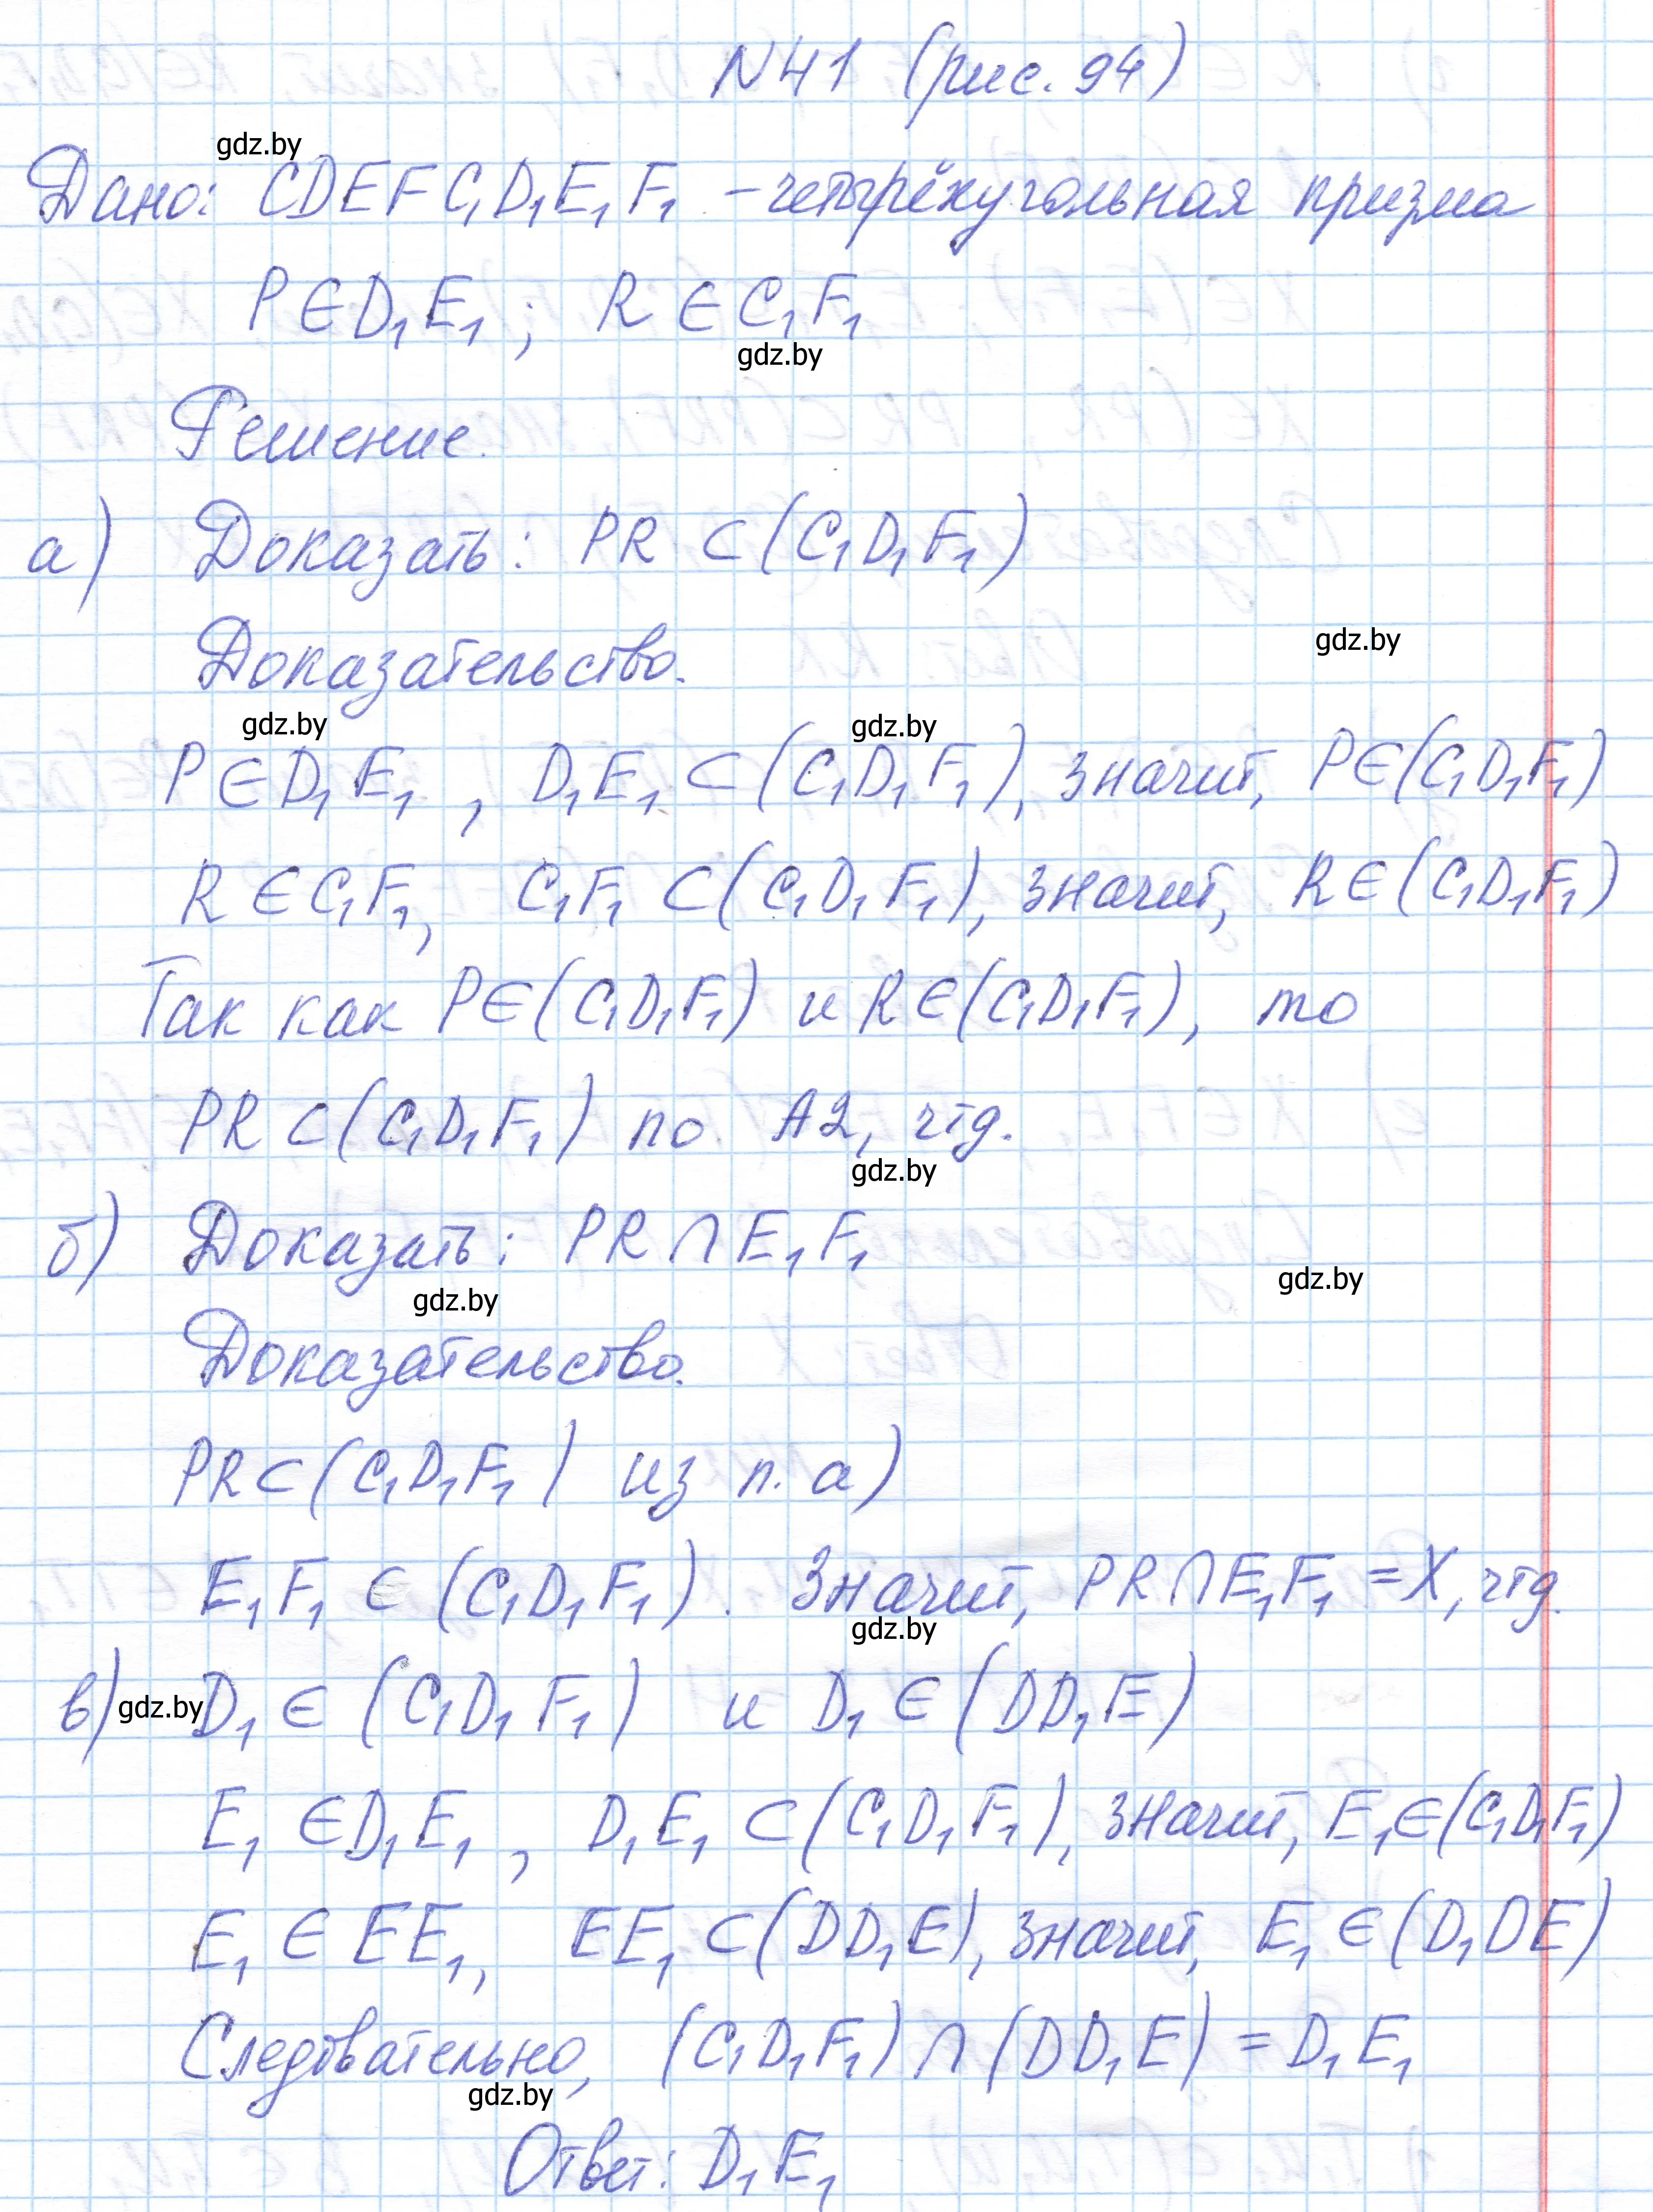 N41 (рис. 94)
gdz.by
Дано: CDEFC₁D₁E₁F₁ – четырёхугольная призма
P∈D₁E₁; R∈C₁F₁
gdz.by
Решение.
а) Доказать: PR ⊂ (C₁D₁F₁)
Доказательство.
gdz.by
gdz.by gdz.by
P∈D₁E₁, D₁E₁ ⊂ (C₁D₁F₁), значит, P∈(C₁D₁F₁)
R∈C₁F₁, C₁F₁ ⊂ (C₁D₁F₁), значит, R∈(C₁D₁F₁)
Так как P∈(C₁D₁F₁) и R∈(C₁D₁F₁), то
PR ⊂ (C₁D₁F₁) по А2, чтд.
gdz.by
б) Доказать: PR ∩ E₁F₁
gdz.by gdz.by
Доказательство.
PR ⊂ (C₁D₁F₁) из п. а)
E₁F₁ ∈ (C₁D₁F₁). Значит, PR∩E₁F₁ = X, чтд.
gdz.by
в) gdz.by D₁ ∈ (C₁D₁F₁) и D₁ ∈ (DD₁E)
E₁ ∈D₁E₁, D₁E₁ ⊂ (C₁D₁F₁), значит, E₁∈(C₁D₁F₁)
E₁ ∈ EE₁, EE₁ ⊂ (DD₁E), значит, E₁ ∈ (D₁DE)
Следовательно, (C₁D₁F₁) ∩ (DD₁E) = D₁E₁
gdz.by
Ответ: D₁E₁